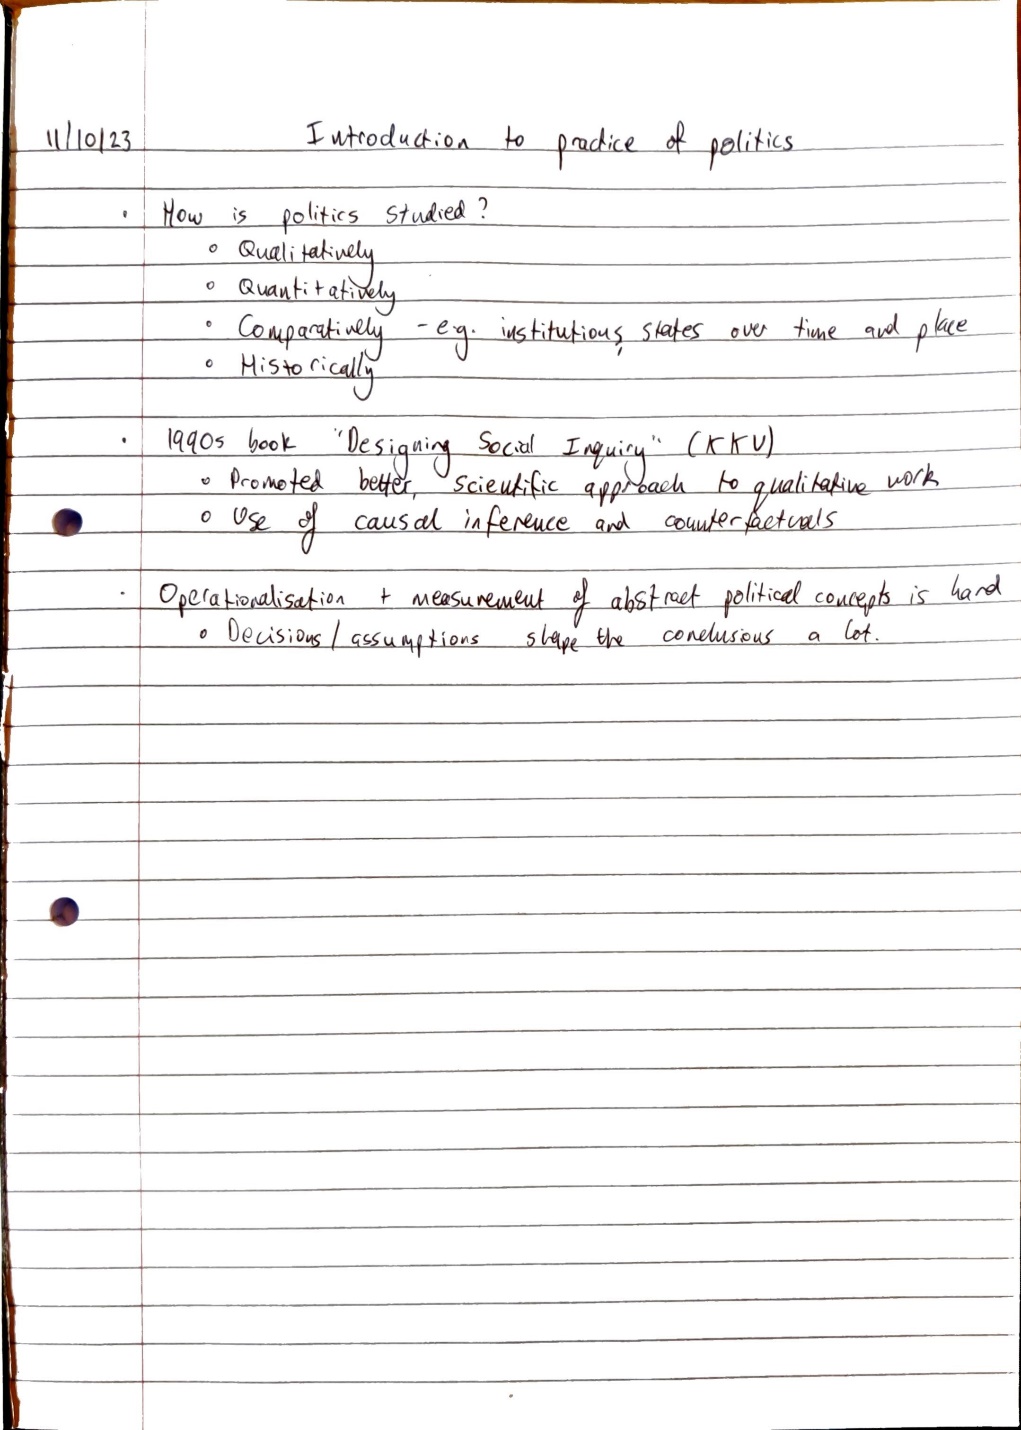 11/10/23 Introduction to practice of politics
· How is politics studied?
o Qualitatively
o Quantitatively
o Comparatively - e.g. institutions, states over time and place
o Historically
· 1990s book "Designing Social Inquiry" (KKV)
o Promoted better, scientific approach to qualitative work
o Use of causal inference and counterfactuals
· Operationalisation + measurement of abstract political concepts is hard
o Decisions / assumptions shape the conclusions a lot.